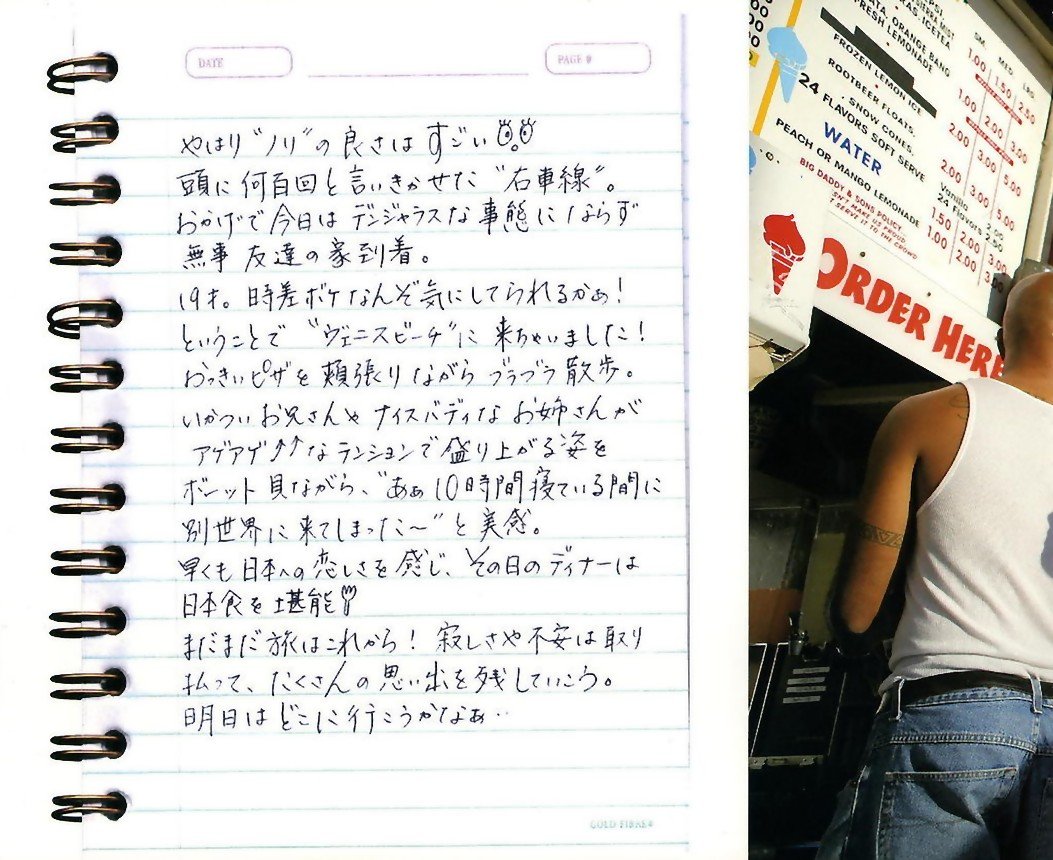 DATE
PAGE #
やはり"ノリ"の良さはすごい
頭に何百回と言いきかせた"右車線"。
おかげで今日はデンジャラスな事態にならず
無事友達の家到着。
19才。時差ボケなんぞ気にしてられるかぁ!
ということで"ヴェニスビーチ"に来ちゃいました!
おっきいピザを頬張りながらブラブラ散歩。
いかついお兄さんやナイスバディなお姉さんが
アゲアゲ↑↑なテンションで盛り上がる姿を
ボーット見ながら、"あぁ10時間寝ている間に
別世界に来てしまった〜"と実感。
早くも日本への恋しさを感じ、その日のディナーは
日本食を堪能
まだまだ旅はこれから!寂しさや不安は取り
払って、たくさんの思い出を残していこう。
明日はどこに行こうかなぁ‥
GOLD FIBRE
SIERRA MIST
ICETEA
ORANGE BANG
FRESH LEMONADE
FROZEN LEMON ICE
ROOTBEER FLOATS.
SNOW CONES.
24 FLAVORS SOFT SERVE
WATER
PEACH OR MANGO LEMONADE
SM MED LRG
1.00 1.50 2.50
1.00 2.00 3.00
2.00 3.00 5.00
2.00 3.00 5.00
Vanilla
24 Flavors
1.50 2.00 3.00
1.00 2.00 3.00
BIG DADDY & SONS POLICY
ORDER HERE